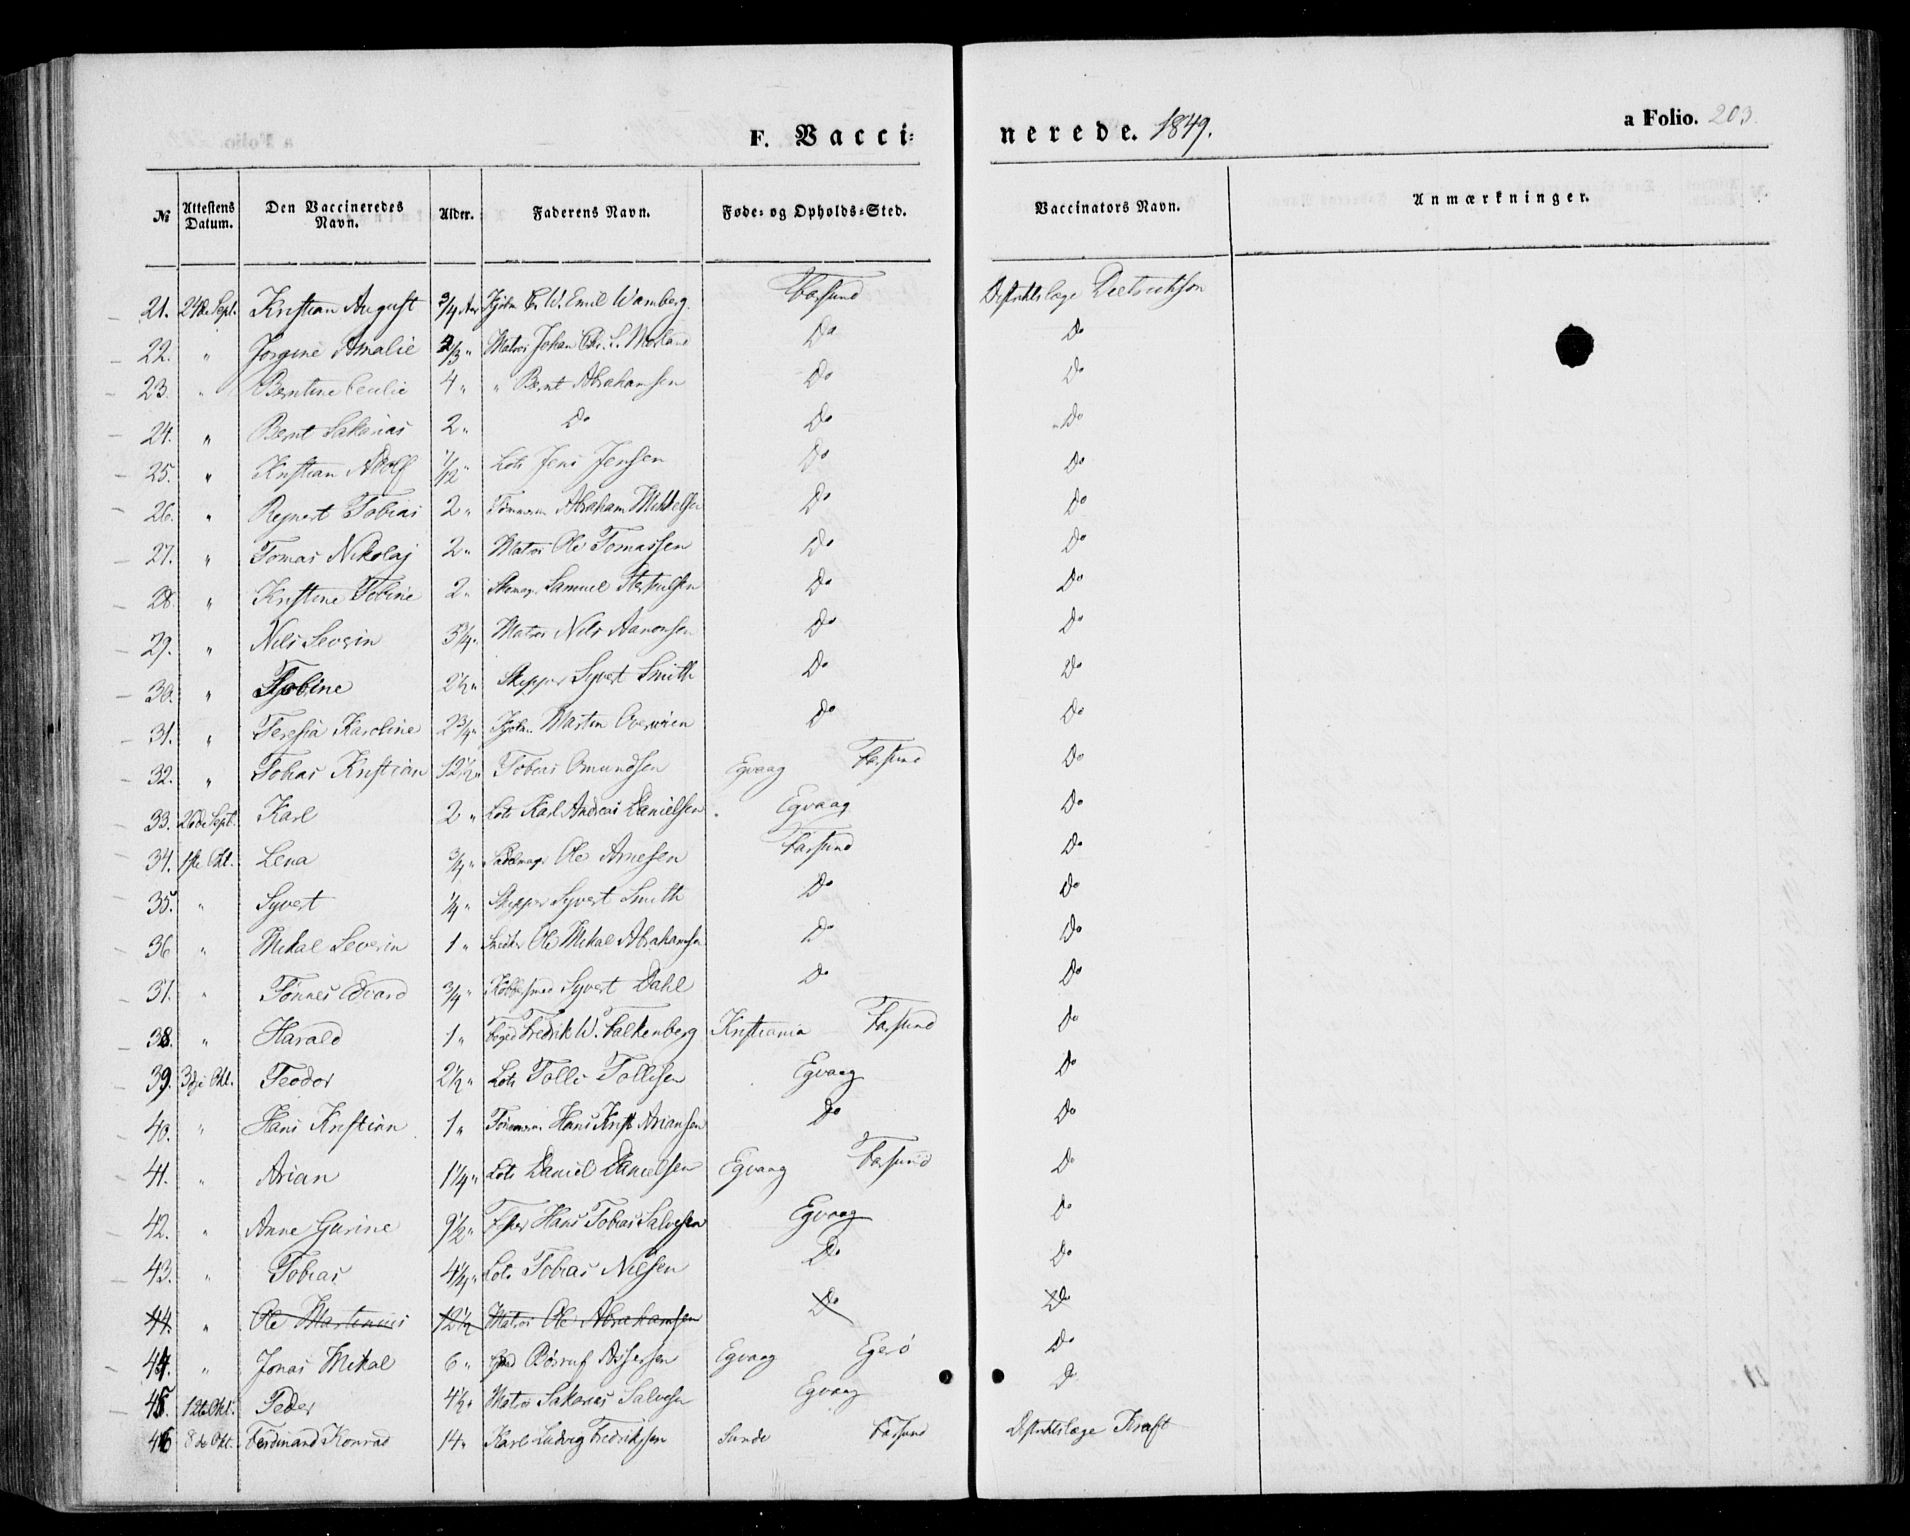 F. Vacci=nerede. 1849. a Folio. 203.
№ Attestens Datum. Den Vaccineredes Navn. Alder. Faderens Navn. Føde= og Opholds=Sted. Vaccinators Navn. Anmærkninger.
21. 24de Sept. Kristian August 3/4 Aar Emil Wamberg Farsund Distriktslæge Dietrichson
22. " Jørgine Amalie 2/3 " Matros Johan Chr. Do Do
23. " Berntine 4 " " Bernt Abrahamsen Do Do
24. " Bernt Sakarias 2 " Do Do Do
25. " Kristian Adolf 1/12 " Lots Jens Jensen Do Do
26. " Rejnert Tobias 2 " Tømmerm Abraham Mikkelsen Do Do
27. " Tomas Nikolaj 2 " Matros Ole Tomassen Do Do
28. " Kristine Tobine 2 " Skomag. Samuel Do Do
29. " Nils Severin 3 3/4 " Matros Nils Aanonsen Do Do
30. " Tobine 2 1/2 " Skipper Syvert Smith Do Do
31. " Teresia Karoline 2 3/4 " Martin Do Do
32. " Tobias Kristian 12 1/2 " Tobias Omundsen Egvaag Farsund Do
33. 26de Sept. Karl 2 " Lots Karl Andreas Danielsen Egvaag Do
34. 1ste Okt. Lena 3/4 " Sadelmag. Ole Arnesen Farsund Do
35. " Syvert 1/4 " Skipper Syvert Smith Do Do
36 " Mikal Severin 1 " Ole Mikal Abrahamsen Do Do
37. " Tønnes Edvard 3/4 " Kobbersmed Syvert Dahl Do Do
38. " Harald 1 " Foged Fredrik W. Falkenberg Kristiania Farsund Do
39. 3dje Okt. Teodor 2 1/2 " Lots Tollis Tollisen Egvaag Do
40. " Hans Kristian 1 " Tømmerm. Hans Krist Ariansen Do Do
41. " Arian 1 1/4 " Lots Daniel Danielsen Egvaag Farsund Do
42. " Anne Gurine 9 1/2 " Hans Tobias Salvesen Egvaag Do
43. " Tobias 4 1/4 " Lots Tobias Nilsen Do Do
44. " Ole Martinius 12 1/2 Matros Ole Abrahamsen Do Do
44. " Jonas Mikal 6 " Assersen Egvaag Egerø Do
45. 12te Okt. Peder 4 1/2 " Matros Sakarias Salvesen Egvaag D
46 8de Okt. Ferdinand Konrad 14 " Karl Ludvig Fredriksen Sunde Farsund Distriktslæge Kraft